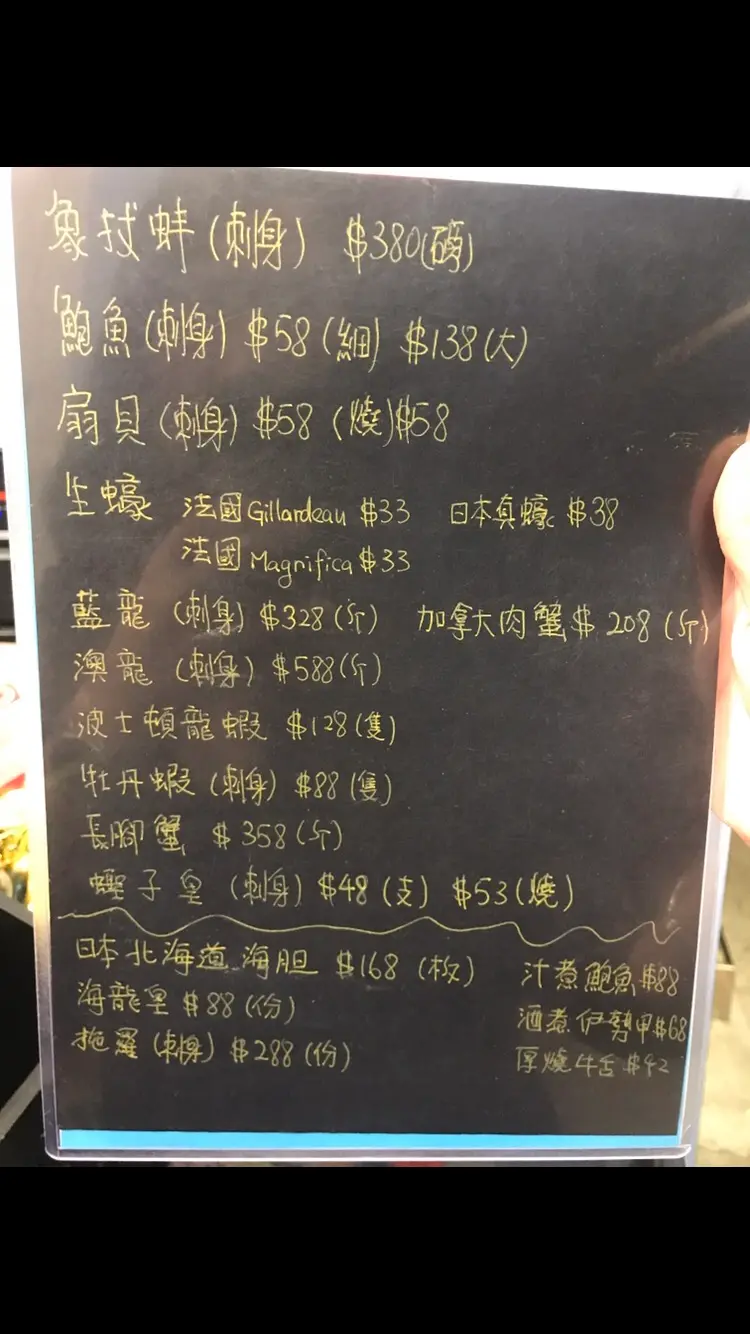 象拔蚌(刺身) $380(磅)
鮑魚(刺身) $58(細) $138(大)
扇貝(刺身) $58 (燒)$58
生蠔 法國Gillardeau $33 日本真蠔 $38
法國Magnifica $33
藍龍 (刺身) $328(斤) 加拿大肉蟹 $208 (斤)
澳龍 (刺身) $588(斤)
波士頓龍蝦 $128(隻)
牡丹蝦 (刺身) $88(隻)
長腳蟹 $358(斤)
蟶子皇 (刺身) $48(支) $53(燒)
日本北海道海胆 $168 (板) 汁煮鮑魚$88
海龍皇 $88(份) 酒煮伊勢甲$68
拖羅(刺身) $288(份) 厚燒牛舌 $42